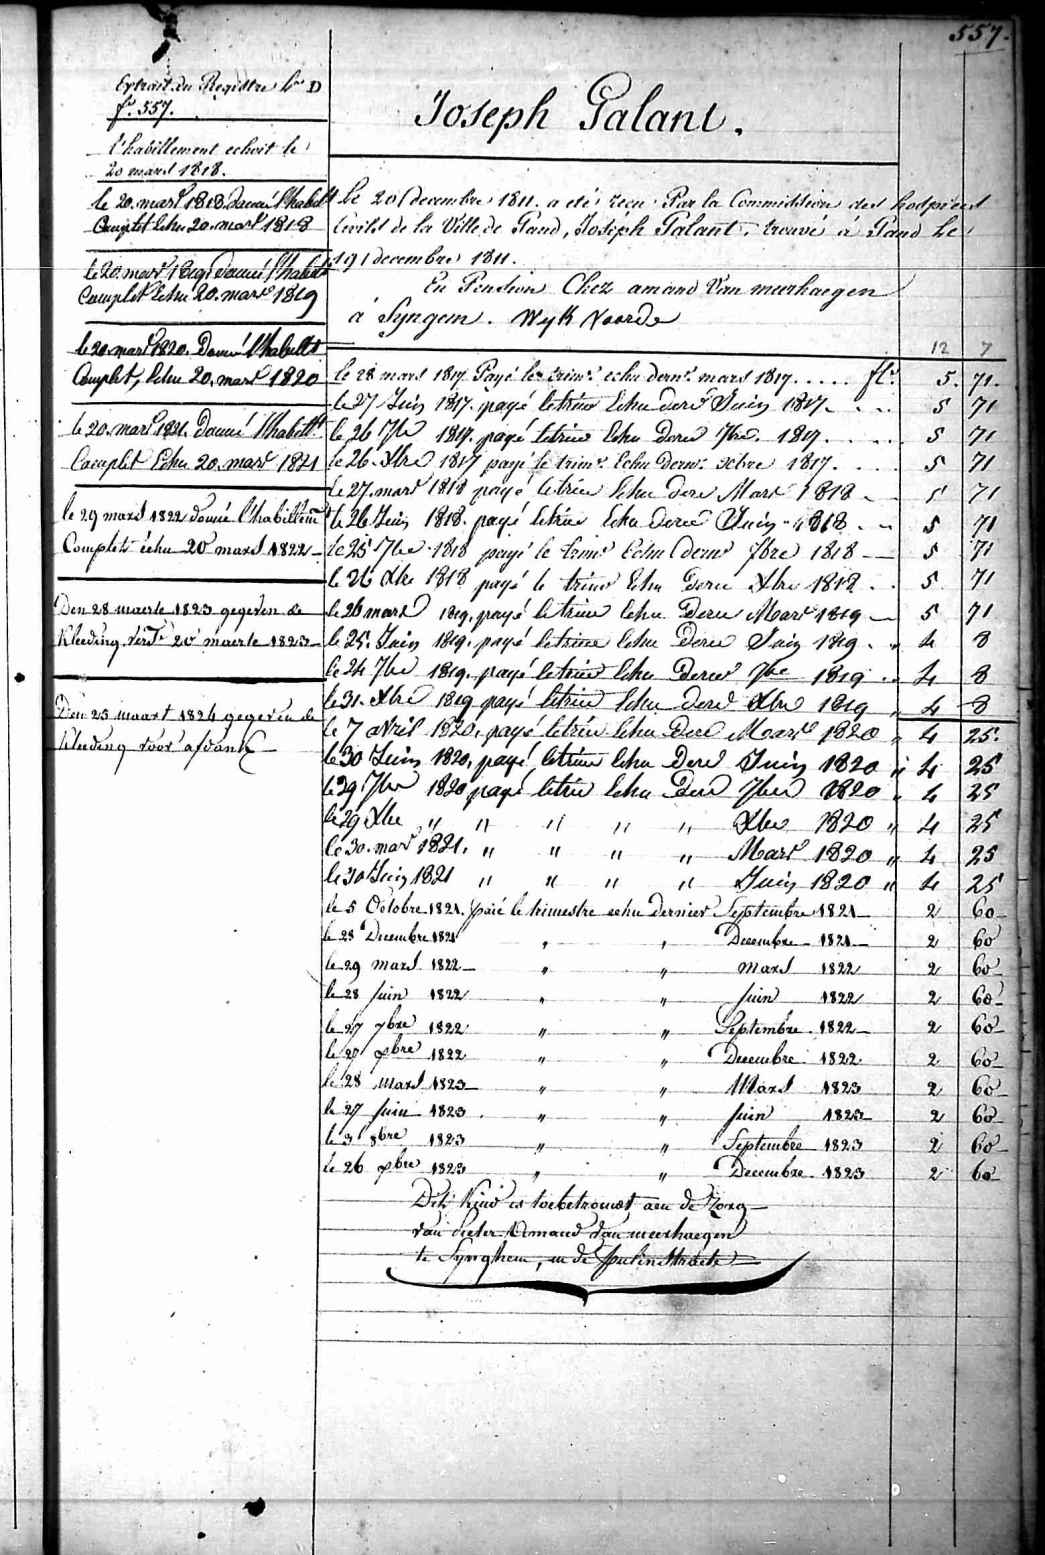 557.
Extrait du Registre Lra D
fo. 557.
l'habillement echoit le
20 mars 1818.
le 20. mars 1818 donné l'habillt
Complet Echu 20. mars 1818
le 20. mars 1819 donné l'habillt
Complet Echu 20. mars 1819
le 20. mars 1820. Donné l'habillt
Complet, Echu 20. mars 1820
le 20. mars 1821. Donné l'habillt
Complet Echu 20. mars 1821
le 29 mars 1822 donné l'habillemt
Complet échu 20 mars 1822
Den 28 maerte 1823 gegeven de
Kleeding 20 maerte 1823
Den 25 maart 1824 gegeven de
Kleeding voor afdank
Joseph Galant.
Le 20 decembre 1811. a eté recu Par la Commission des hospices
Civils de la Ville de Gand, Joséph Galant, trouvé á Gand Le
19 decembre 1811.
En Pension Chez amand Van meerhaegen
á Syngem. Wyk Voorde
12 7
le 28 mars 1817 Payé le trimr. echu dernr. mars 1817 ..... fls. 5. 71.
le 27 Juin 1817. payé le trim Echu derr Juin 1817 5 71
le 26 7bre 1817. payé le trim Echu Derr 7bre. 1817 5 71
le 26. Xbre 1817 payé le trimr. Echu Dernr. Xbre 1817. 5 71
le 27. mars 1818 payé le trim Echu derr Mars 1818 5 71
le 26 Juin 1818. payé le trim Echu derr Juin 1818 5 71
le 25 7bre 1818 payé le trimr Echu dernr 7bre 1818 5 71
le 26 Xbre 1818 payé le trimr Echu Derr Xbre 1818 5 71
le 26 mars 1819, payé le trim Echu Derr Mars 1819 5 71
le 25. Juin 1819, payé le trim Echu Derr Juin 1819 " 4 8
le 24 7bre 1819. payé le trim Echu Dernr 7bre 1819 4 8
le 31. Xbre 1819 payé le trim Echu derr Xbre 1819 " 4 8
le 7 avril 1820, payé le trim Echu Derr Mars 1820 " 4 25.
le 30 Juin 1820, payé le trim Echu Derr Juin 1820 " 4 25
le 29 7bre 1820 payé le trim Echu Derr 7bre 1820 " 4 25
le 29 Xbre " " " " " Xbre 1820 " 4 25
le 30. mars 1821. " " " " Mars 1820 " 4 25
le 30 Juin 1821 " " " " Juin 1820 " 4 25
le 5 Octobre 1821. païé le trimestre echu dernier Septembre 1821 2 60
le 28 Decembre 1821 " " Decembre 1821 2 60
le 29 mars 1822 " " mars 1822 2 60
le 28 juin 1822 " " juin 1822 2 60
le 27 7bre 1822 " " Septembre 1822 2 60
le 27 xbre 1822 " " Decembre 1822 2 60
le 28 mars 1823 " " Mars 1823 2 60
le 27 juin 1823 " " juin 1823 2 60
le 3 8bre 1823 " " Septembre 1823 2 60
le 26 xbre 1823 " " Decembre 1823 2 60
Dit kind is toebetrouwt aen de zorg
van pieter Amand Van meerhaegen
te Synghem, in de